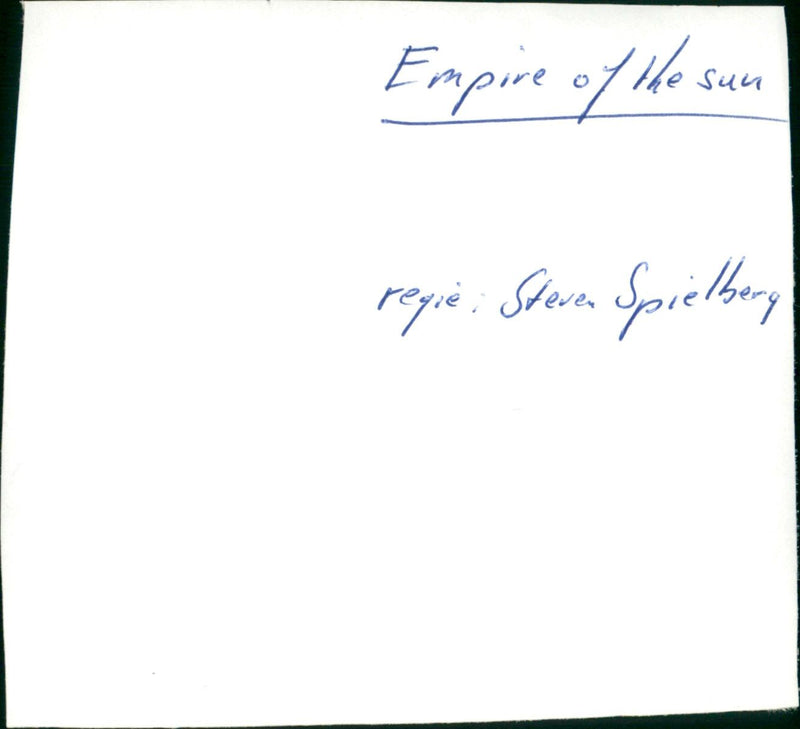 Empire of the sun
regie: Steven Spielberg